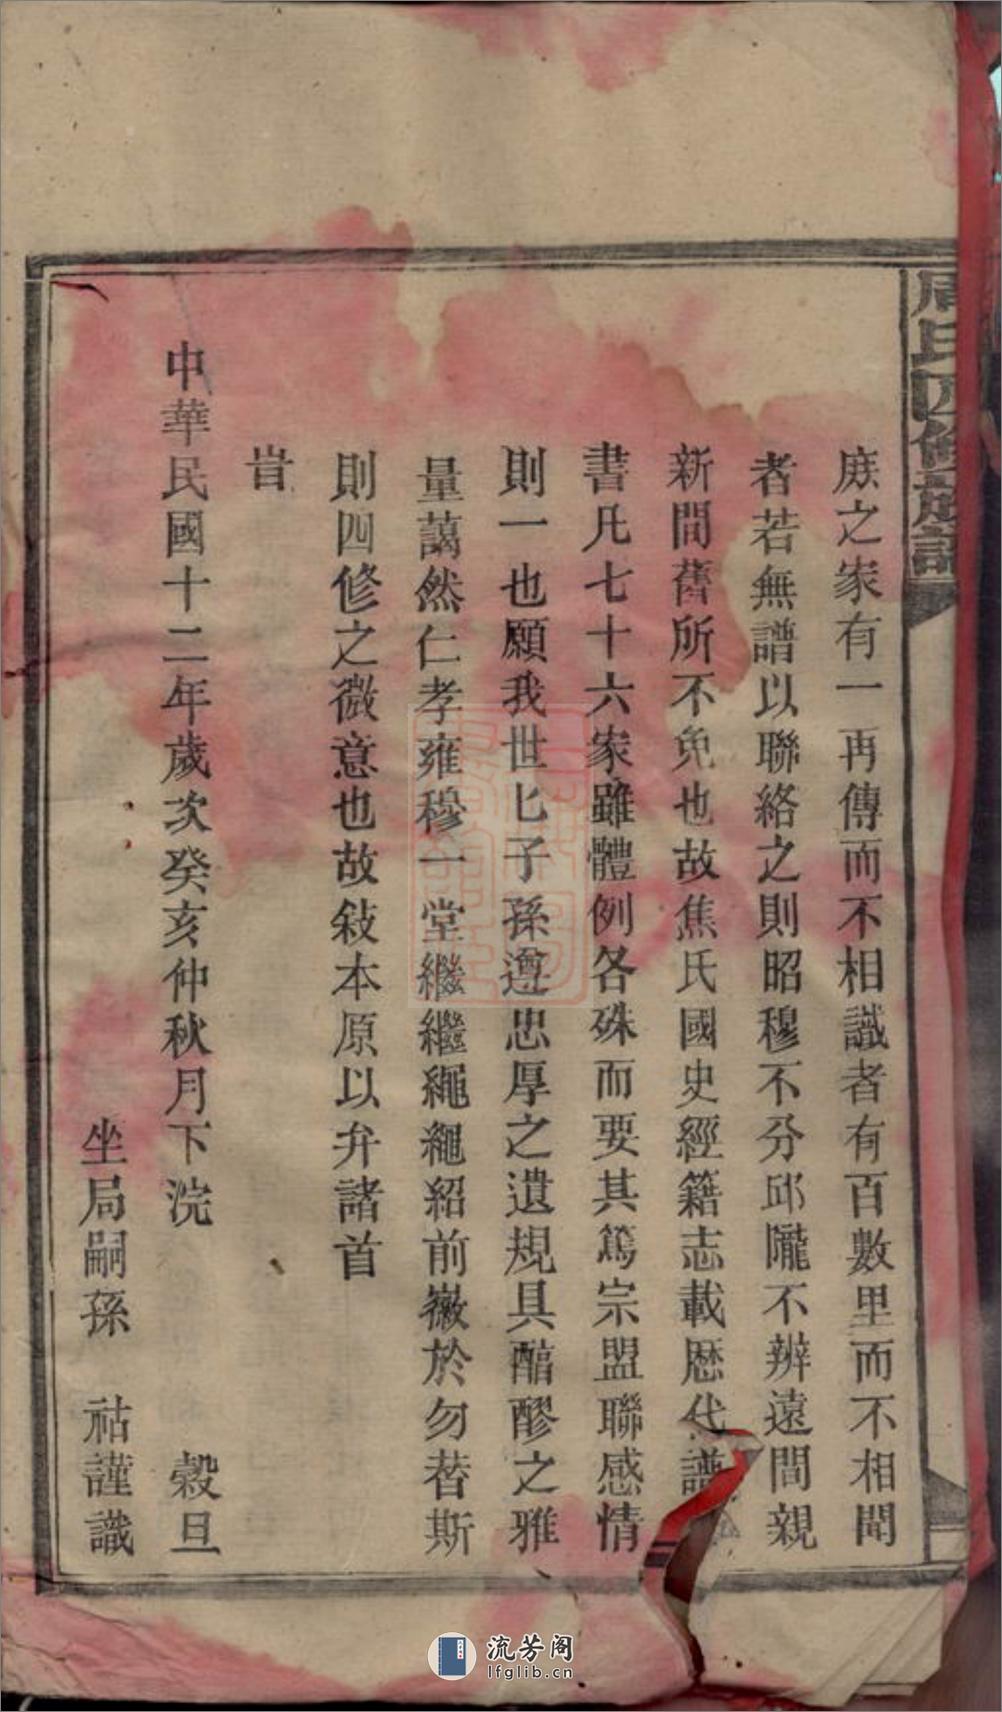 周氏四修族譜
庭之家有一再傳而不相識者有百數里而不相聞
者若無譜以聯絡之則昭穆不分邱隴不辨遠間親
新間舊所不免也故焦氏國史經籍志載歷代譜
書凡七十六家雖體例各殊而要其篤宗盟聯感情
則一也願我世匕子孫遵忠厚之遺規具醕醪之雅
量藹然仁孝雍穆一堂繼繼繩繩紹前徽於勿替斯
則四修之微意也故敍本原以弁諸首
旹
中華民國十二年歲次癸亥仲秋月下浣 穀旦
坐局嗣孫 祜謹識
流芳阁
lfglib.cn